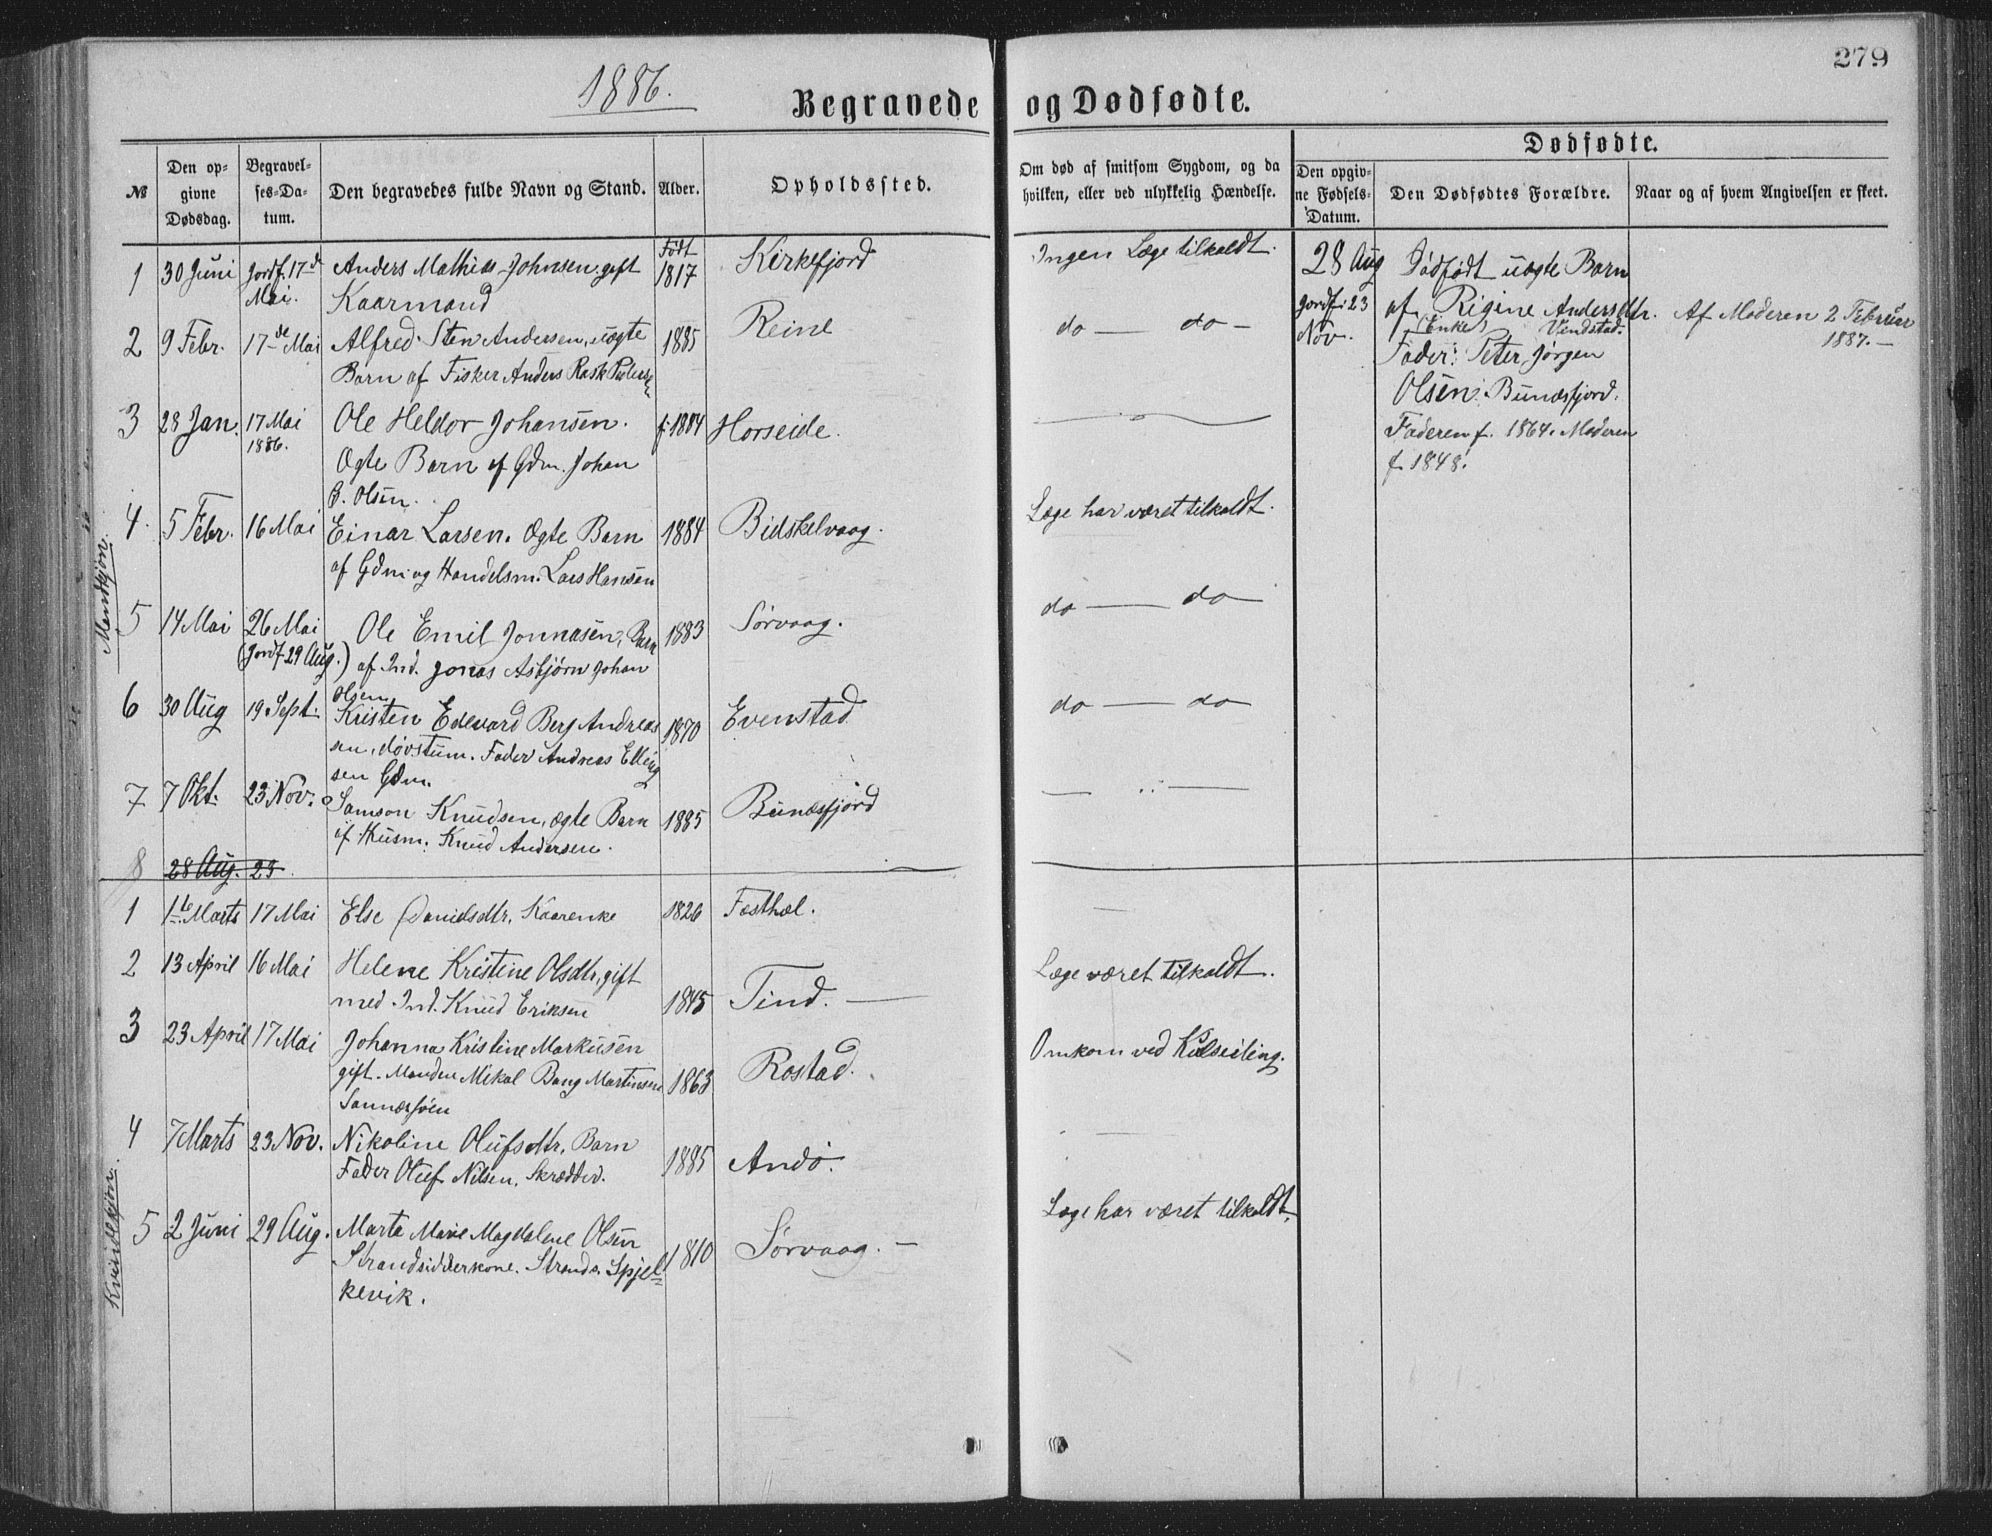 279
1886.
Begravede og Dødfødte.
Dødfødte.
№
Den opgivne Dødsdag.
Begravelses-Datum.
Den begravedes fulde Navn og Stand.
Alder.
Opholdssted.
Om død af smitsom Sygdom, og da hvilken, eller ved ulykkelig Hændelse.
Den opgivne Fødsels-Datum.
Den Dødfødtes Forældre.
Naar og af hvem Angivelsen er skeet.
Mandkjøn.
1 30 Juni Jordf. 17d Mai. Anders Mathias Johnsen gift Født 1817 Kirkefjord Ingen Læge tilkaldt.
Kaarmand
2 9 Febr. 17de Mai Alfred Sten Andersen, uægte 1885 Reine do — do —
Barn af Fisker Anders Rask Peders
3 28 Jan. 17 Mai 1886. Ole Heldor Johansen. f. 1884 Horseide.
Ægte Barn af Gdm. Johan
B. Olsen.
4. 5 Febr. 16 Mai Einar Larsen. Ægte Barn 1884 Bidskelvaag. Læge har været tilkaldt.
af Gdm. og Handelsm. Lars Hansen
5 14 Mai 26 Mai (Jordf. 29 Aug.) Ole Emil Jonnasen, Barn 1883 Sørvaag. do — do
af Ind. Jonas Asbjørn Johan
Olsen
6 30 Aug 19 Sept. Kristen Edevard Berg Andreas 1870 Evenstad do — do
sen, døvstum. Fader Andreas Elling
sen Gdm.
7 7 Okt. 23 Nov. Samson Knudsen, ægte Barn 1885 Bunæsfjord — .. —
af Husm. Knud Andersen.
8 28 Aug. 23
Kvindekjøn.
1 1te Marts 17 Mai Else Danielsdtr. Kaarenke 1826 Fæsthæl. —
2 13 April 16 Mai Helene Kristine Olsdtr, gift 1845 Tind. — Læge været tilkaldt.
med Ind. Knud Eriksen
3 23 April 17 Mai Johanna Kristine Markusen 1863 Rostad. Omkom ved Kulseiling.
gift. Manden Mikal Bang Martinsen
Sannæsøen
4 7 Marts 23 Nov. Nikoline Olufsdtr. Barn 1885 Andø.
Fader Oluf Nilsen, Skrædder.
5 2 Juni 29 Aug. Marta Marie Magdalene Olsen 1810 Sørvaag. — Læge har været tilkaldt.
Strandsidderkone. Strands. Spjel=
kevik.
28 Aug
Jordf. 23
Nov.
Dødfødt uægte Barn
af Regine Andersdtr.
(Enke) Vindstad.
Fader: Peter Jørgen
Olsen Bunæsfjord.
Faderen f. 1864. Moderen
f. 1848.
Af Moderen 2 Februar
1887. —